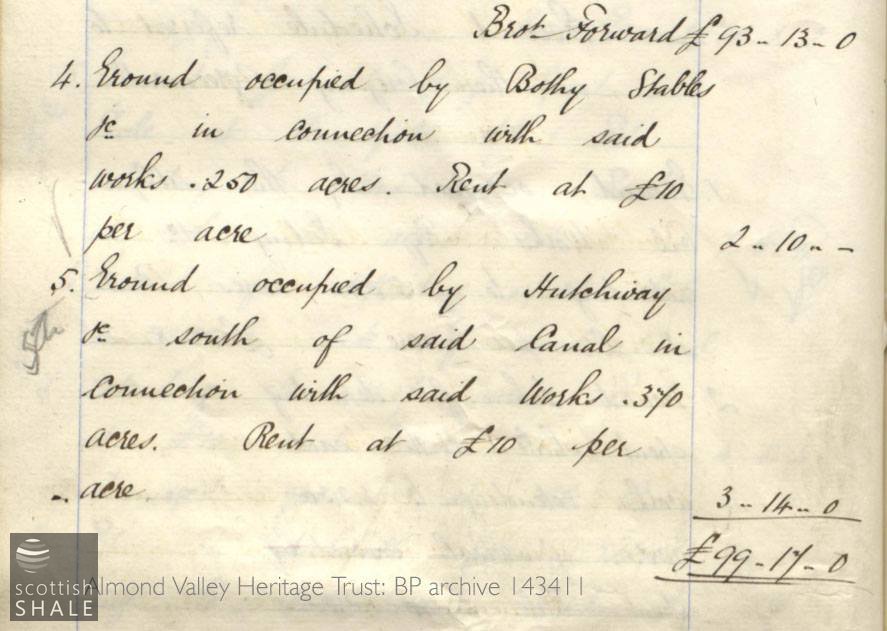 Brot Forward £93 - 13 - 0
4. Ground occupied by Bothy Stables
&c in connection with said
works .250 acres. Rent at £10
per acre 2 - 10 - -
5. Ground occupied by Hutchway
&c south of said Canal in
connection with said Works .370
acres. Rent at £10 per
acre 3 - 14 - 0
£99 - 17 - 0
scottish
SHALE
Almond Valley Heritage Trust: BP archive 143411